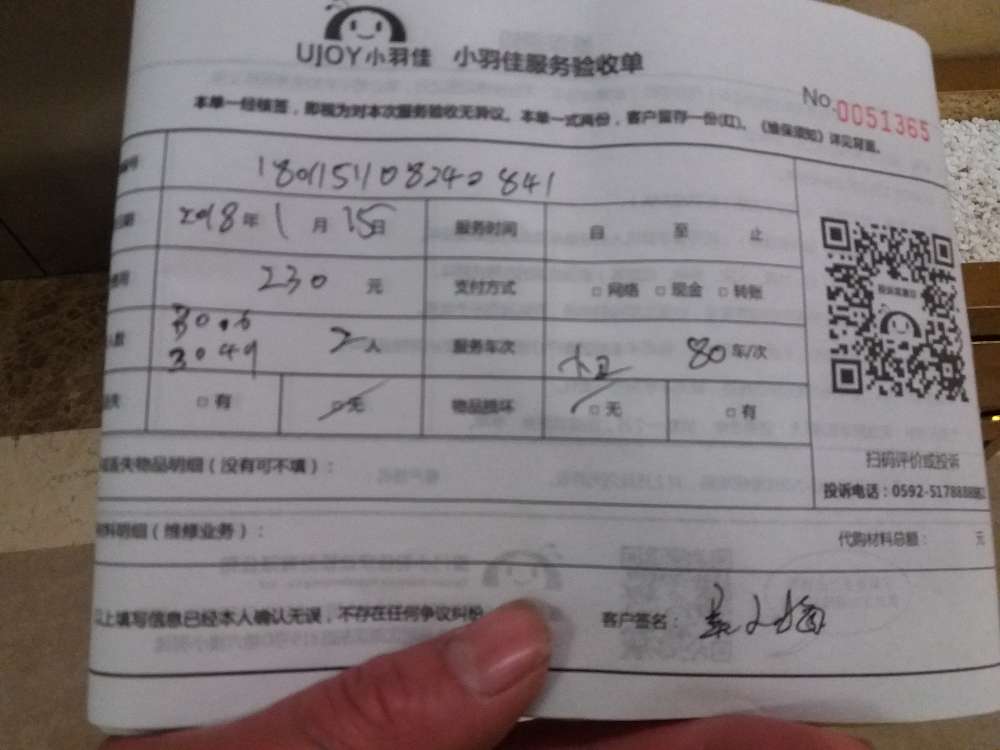 UJOY小羽佳 小羽佳服务验收单
No.0051365
本单一经核签，即视为对本次服务验收无异议。本单一式两份，客户留存一份(红)。《维保须知》详见背面。
号 180115110824 0841
期 2018年1月15日 服务时间 自 至 止
用 230 元 支付方式 □网络 □现金 □转账
数 3049 2人 服务车次 80车/次
失 □有 □无 物品损坏 □无 □有
扫码评价或投诉
遗失物品明细（没有可不填）：
投诉电话：0592-5178888
材料明细（维修业务）： 代购材料总额： 元
以上填写信息已经本人确认无误，不存在任何争议纠纷
客户签名：